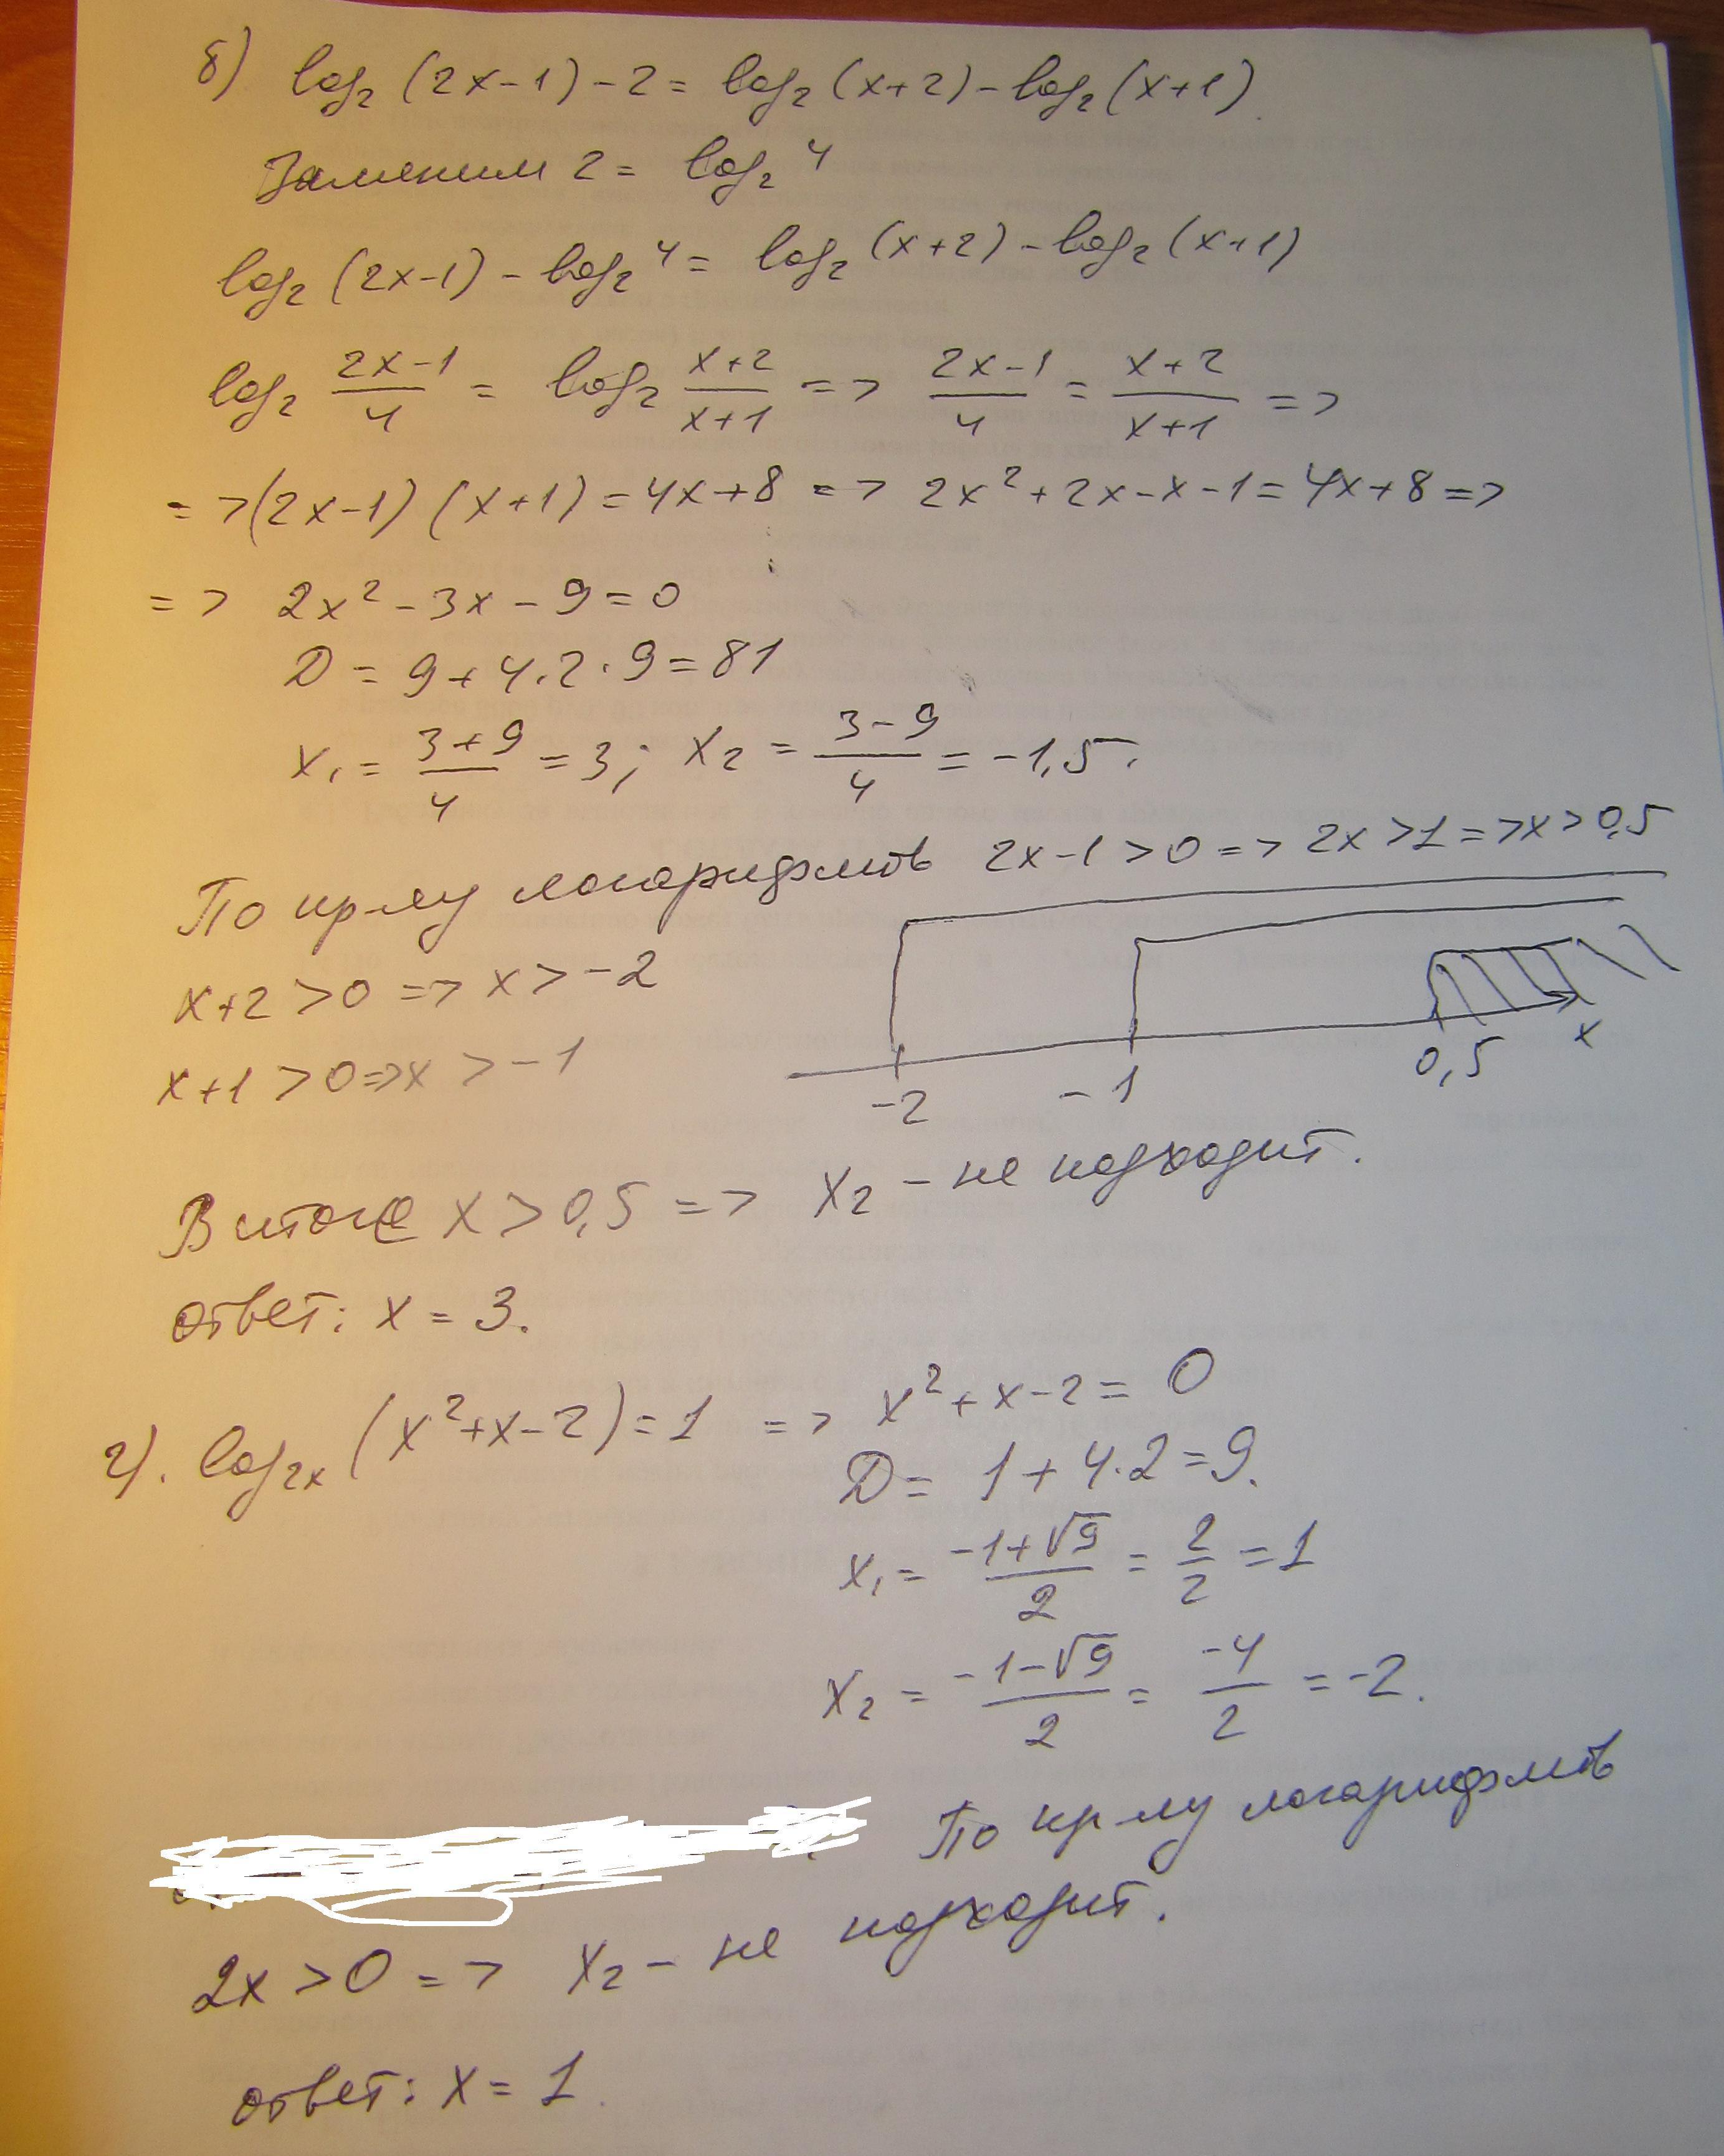 б) log₂ (2x-1) - 2 = log₂ (x+2) - log₂ (x+1)
Заменим 2 = log₂ 4
log₂ (2x-1) - log₂ 4 = log₂ (x+2) - log₂ (x+1)
log₂ (2x-1)/4 = log₂ (x+2)/(x+1) => (2x-1)/4 = (x+2)/(x+1) =>
=> (2x-1) (x+1) = 4x+8 => 2x² + 2x - x - 1 = 4x+8 =>
=> 2x² - 3x - 9 = 0
D = 9 + 4·2·9 = 81
x₁ = (3+9)/4 = 3; x₂ = (3-9)/4 = -1,5.
По пр-лу логарифмов 2x-1 > 0 => 2x > 1 => x > 0,5
x+2 > 0 => x > -2
x+1 > 0 => x > -1
-2 -1 0,5 x
В итоге x > 0,5 => x₂ - не подходит.
ответ: x = 3.
г). log₂ₓ (x²+x-2) = 1 => x² + x - 2 = 0
D = 1 + 4·2 = 9.
x₁ = (-1+√9)/2 = 2/2 = 1
x₂ = (-1-√9)/2 = -4/2 = -2.
По пр-лу логарифмов
2x > 0 => x₂ - не подходит.
ответ: x = 1